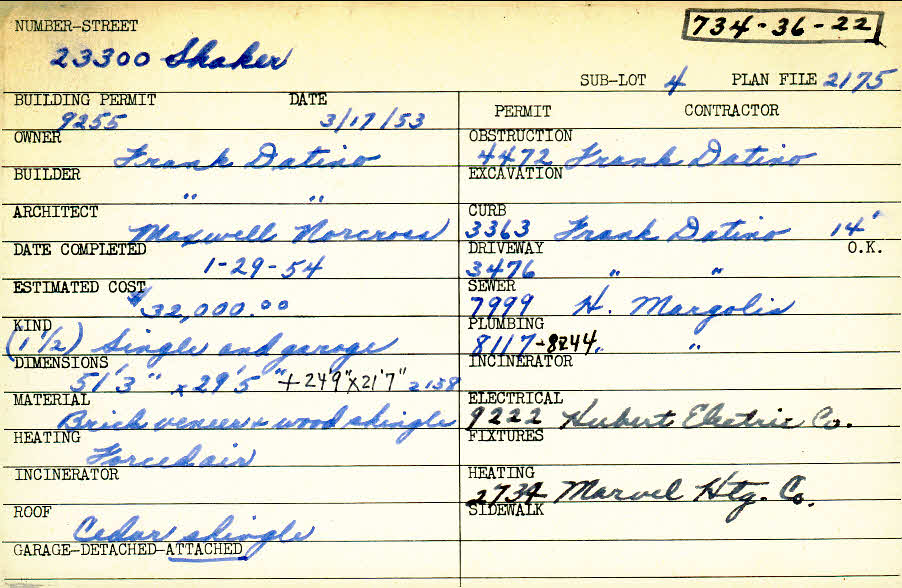 NUMBER-STREET 734-36-22
23300 Shaker
SUB-LOT 4 PLAN FILE 2175
BUILDING PERMIT DATE
9255 3/17/53
OWNER
Frank Datino
BUILDER
" "
ARCHITECT
Maxwell Norcross
DATE COMPLETED
1-29-54
ESTIMATED COST
$32,000.00
KIND
(1 1/2) Single and garage
DIMENSIONS
51'3" x 29'5" + 24'9" x 21'7" 2138
MATERIAL
Brick veneer + wood shingle
HEATING
Forced air
INCINERATOR
ROOF
Cedar shingle
GARAGE-DETACHED-ATTACHED
PERMIT CONTRACTOR
OBSTRUCTION
4472 Frank Datino
EXCAVATION
CURB
3363 Frank Datino 14'
DRIVEWAY O.K.
3476 " "
SEWER
7999 H. Margolis
PLUMBING
8117-8244 " "
INCINERATOR
ELECTRICAL
9222 Hubert Electric Co.
FIXTURES
HEATING
2734 Marvel Htg. Co.
SIDEWALK